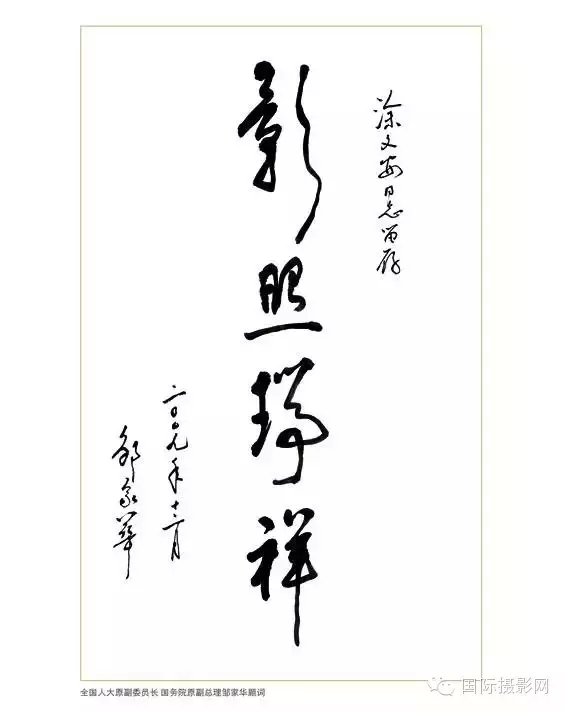 涂文安同志留存
影照瑞祥
二〇〇九年十二月
邹家华
全国人大原副委员长 国务院原副总理邹家华题词
国际摄影网